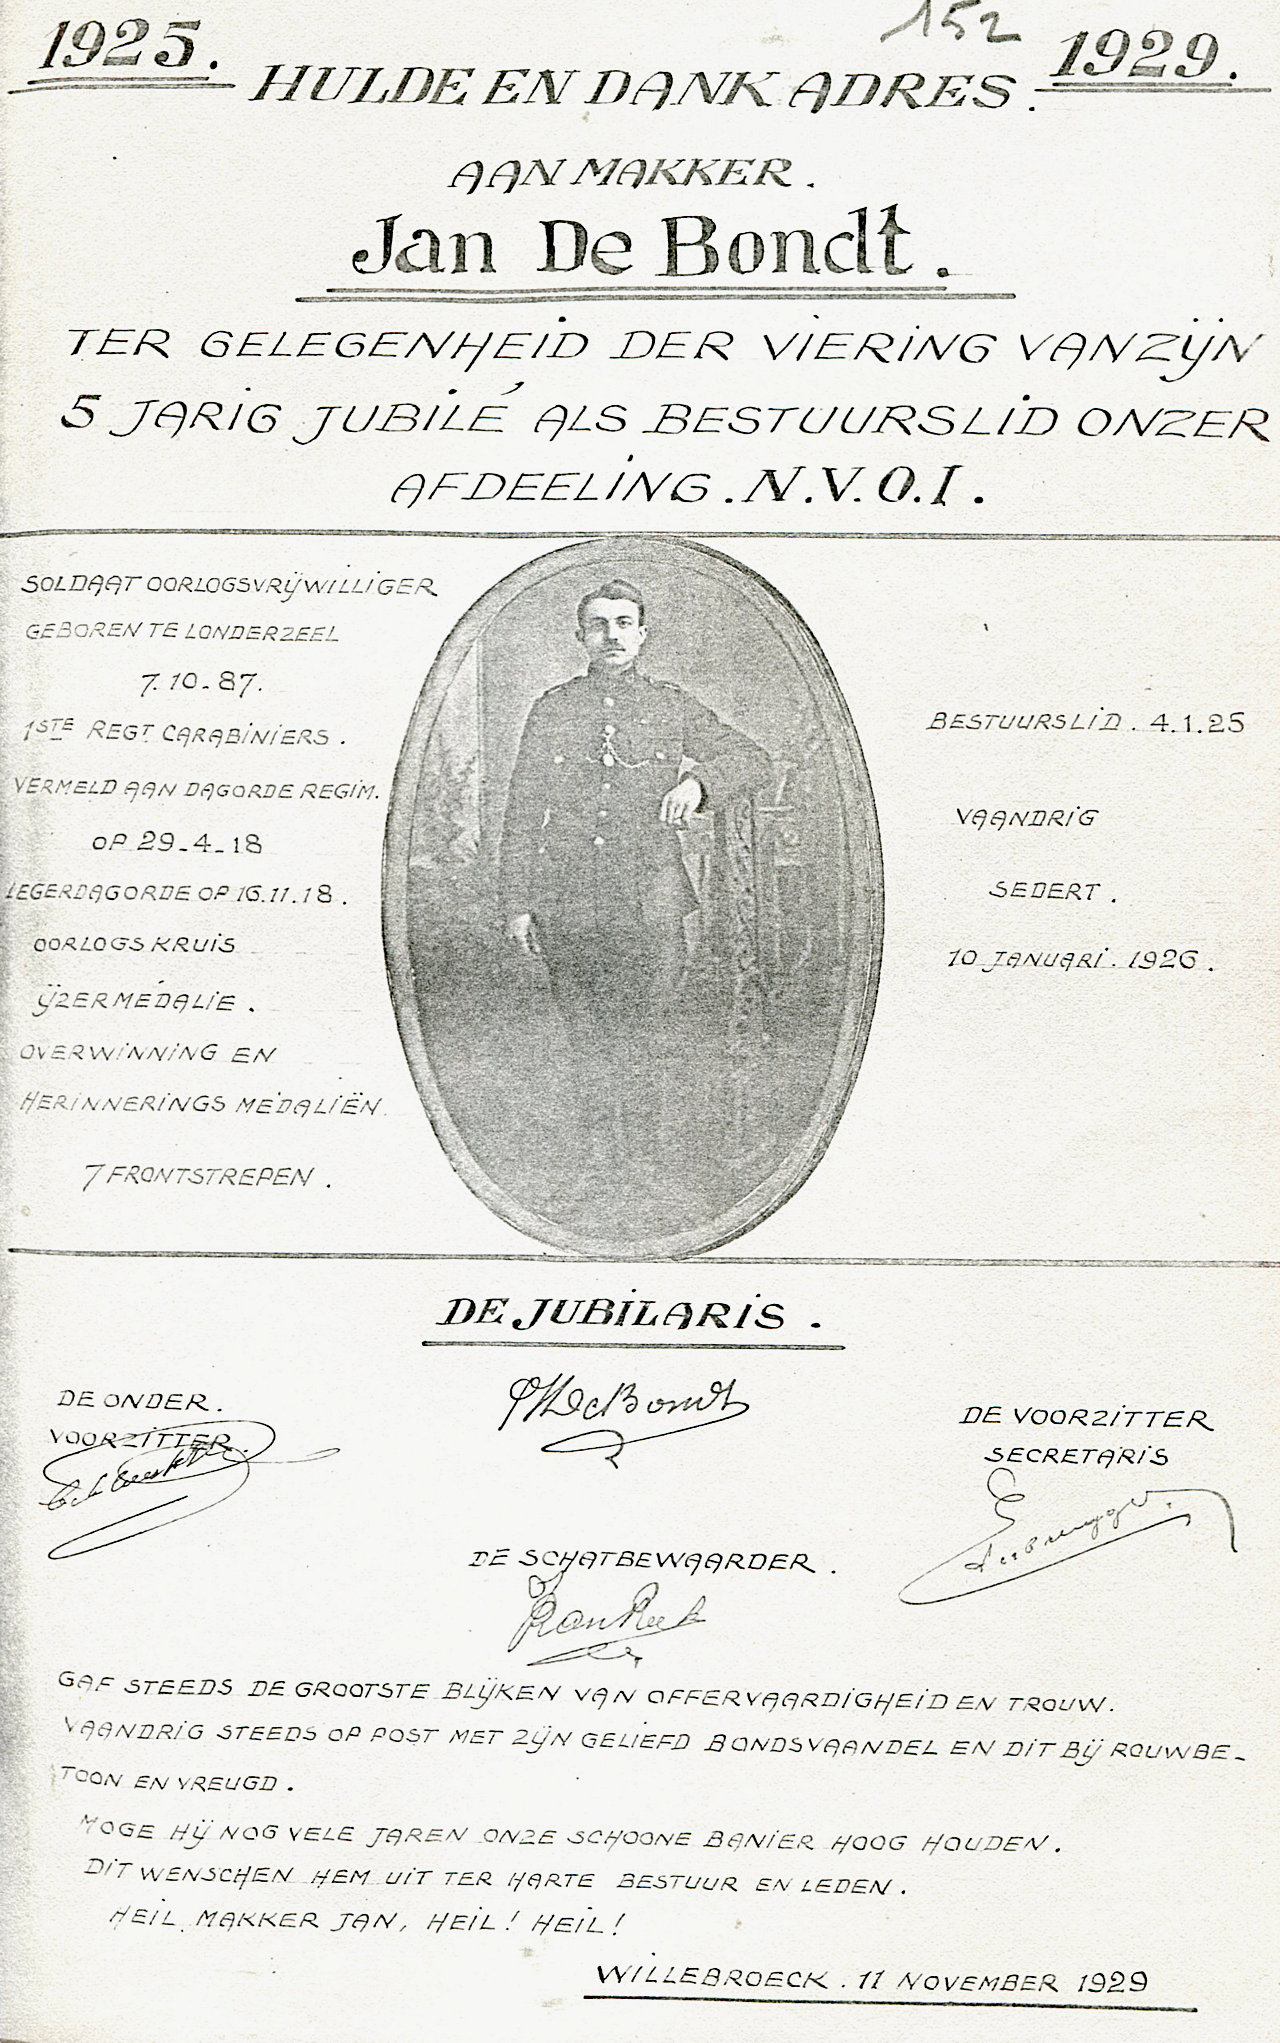 152
1925. 1929.
HULDE EN DANK ADRES.
AAN MAKKER.
Jan De Bondt.
TER GELEGENHEID DER VIERING VAN ZIJN
5 JARIG JUBILÉ ALS BESTUURSLID ONZER
AFDEELING. N.V.O.I.
SOLDAAT OORLOGSVRIJWILLIGER
GEBOREN TE LONDERZEEL
7.10-87.
1STE REGT CARABINIERS.
VERMELD AAN DAGORDE REGIM.
OP 29-4-18
LEGERDAGORDE OP 16.11.18.
OORLOGSKRUIS
IJZERMÉDALIE.
OVERWINNING EN
HERINNERINGS MEDALIËN
7 FRONTSTREPEN.
BESTUURSLID. 4.1.25
VAANDRIG
SEDERT.
10 JANUARI. 1926.
DE JUBILARIS.
DeBondt
DE ONDER.
VOORZITTER.
DE VOORZITTER
SECRETARIS
DE SCHATBEWAARDER.
GAF STEEDS DE GROOTSTE BLIJKEN VAN OFFERVAARDIGHEID EN TROUW.
VAANDRIG STEEDS OP POST MET ZIJN GELIEFD BONDSVAANDEL EN DIT BIJ ROUWBE-
TOON EN VREUGD.
MOGE HIJ NOG VELE JAREN ONZE SCHOONE BANIER HOOG HOUDEN.
DIT WENSCHEN HEM UIT TER HARTE BESTUUR EN LEDEN.
HEIL, MAKKER JAN, HEIL! HEIL!
WILLEBROECK. 11 NOVEMBER 1929